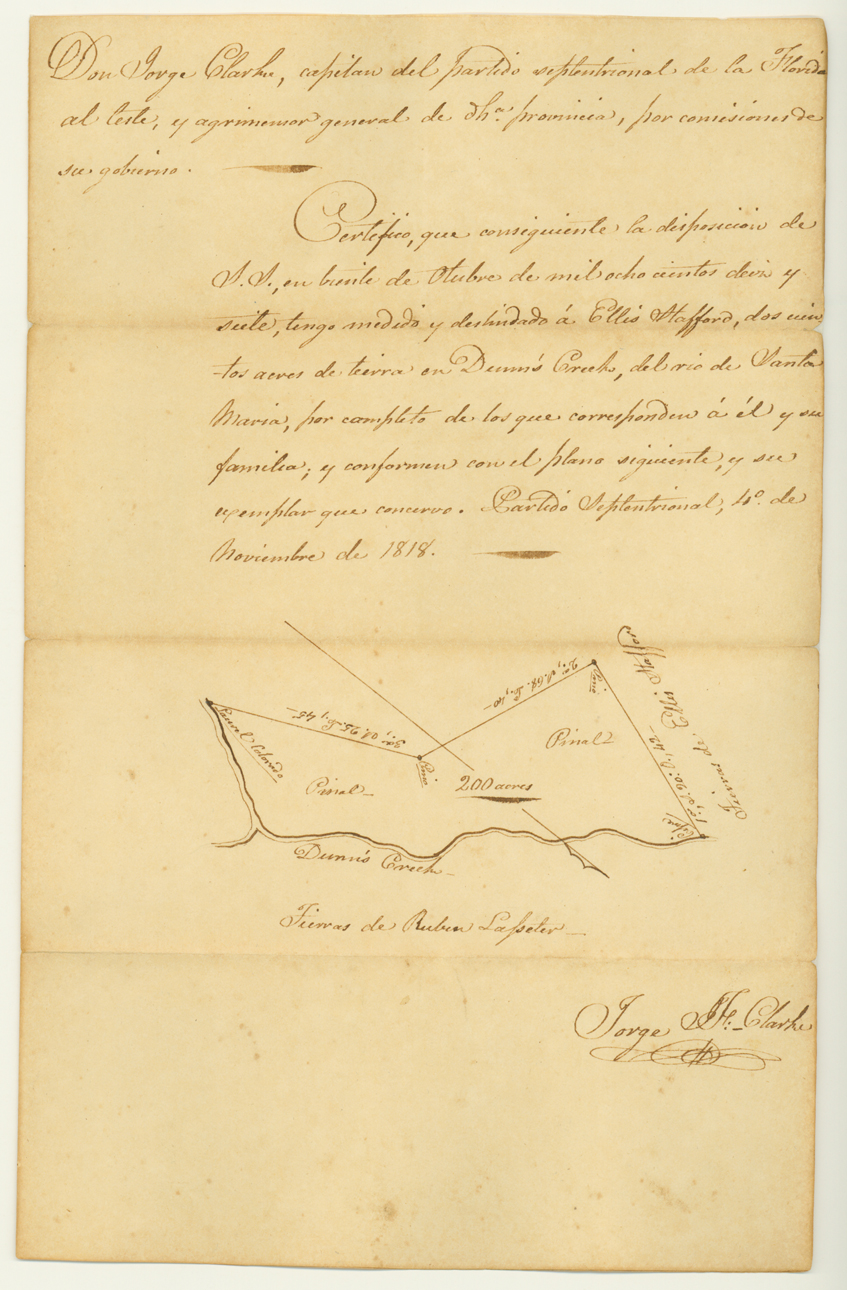 Don Jorge Clarke, capitan del partido septentrional de la Florida
al leste, y agrimensor general de dhª. provincia, por comisiones de
su gobierno.
Certifico, que consiguiente la disposicion de
S. S., en beinte de Otubre de mil ocho cientos dein y
siete, tengo medido y deslindado á Ellis Stafford, dos cien
tos acres de tierra en Dunn's Creek, del rio de Santa
Maria, por completo de los que corresponden á él y su
familia; y conformen con el plano siguiente, y su
exemplar que concervo. Partido Septentrional, 4º. de
Noviembre de 1818.
Tierras de Ellis Stafford
Pino
Laurel Colorado
Pinal
Pinal
Pino
200 acres
Dunn's Creek
Tierras de Ruben Lasseter
Jorge J. F. Clarke